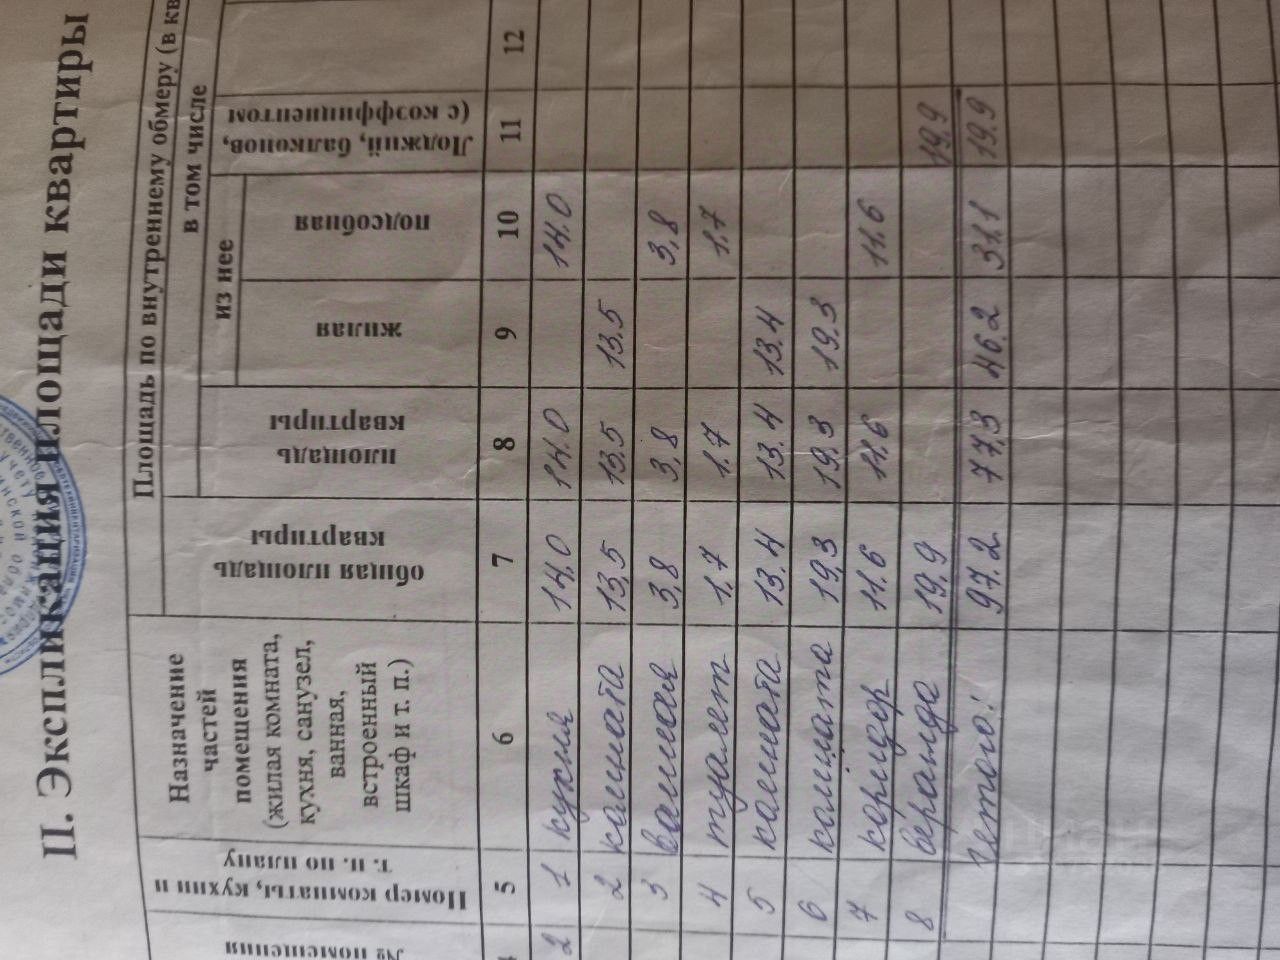 II. Экспликация площади квартиры
Площадь по внутреннему обмеру (в кв
в том числе
из нее
№ помещения
Номер комнаты, кухни и
т. п. по плану
Назначение
частей
помещения
(жилая комната,
кухня, санузел,
ванная,
встроенный
шкаф и т. п.)
общая площадь
квартиры
площадь
квартиры
жилая
подсобная
Лоджий, балконов,
(с коэффициентом
5 6 7 8 9 10 11 12
2 1 кухня 14,0 14.0 14.0
2 комната 13,5 13.5 13.5
3 ванная 3,8 3,8 3,8
4 туалет 1,7 1.7 1.7
5 комната 13.4 13.4 13.4
6 комната 19,3 19.3 19.3
7 коридор 11.6 11.6 11.6
8 веранда 19,9 19,9
Итого: 97.2 77,3 46.2 31.1 19.9
циан